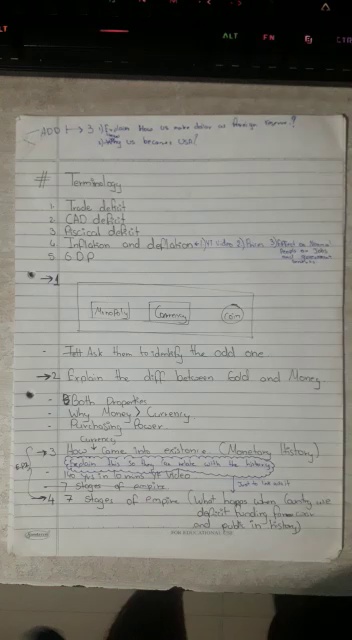 ALT FN CTR
ADD → 3 1) Explain How us make dollar as foreign reserve?
2) Why us becomes USR?
# Terminology
1. Trade deficit
2. CAD deficit
3. Fiscical deficit
4. Inflation and deflation → 1) YT Video 2) Prices 3) Effect on
People on Jobs
and government
5. GDP
→ 1
Monopoly Currency Coin
- Ask them to identify the odd one
→ 2 Explain the diff between Gold and Money.
- Both Properties
- Why Money > Currency
- Purchasing Power
→ 3 How Currency came into existence (Monetary History)
Explain this so they can relate with the history
- 110 yrs in 10 mins YT video
- 7 stages of empire
→ 4 7 stages of empire (What happs when County use
deficit funding for war
and public in History)
FOR EDUCATIONAL USE